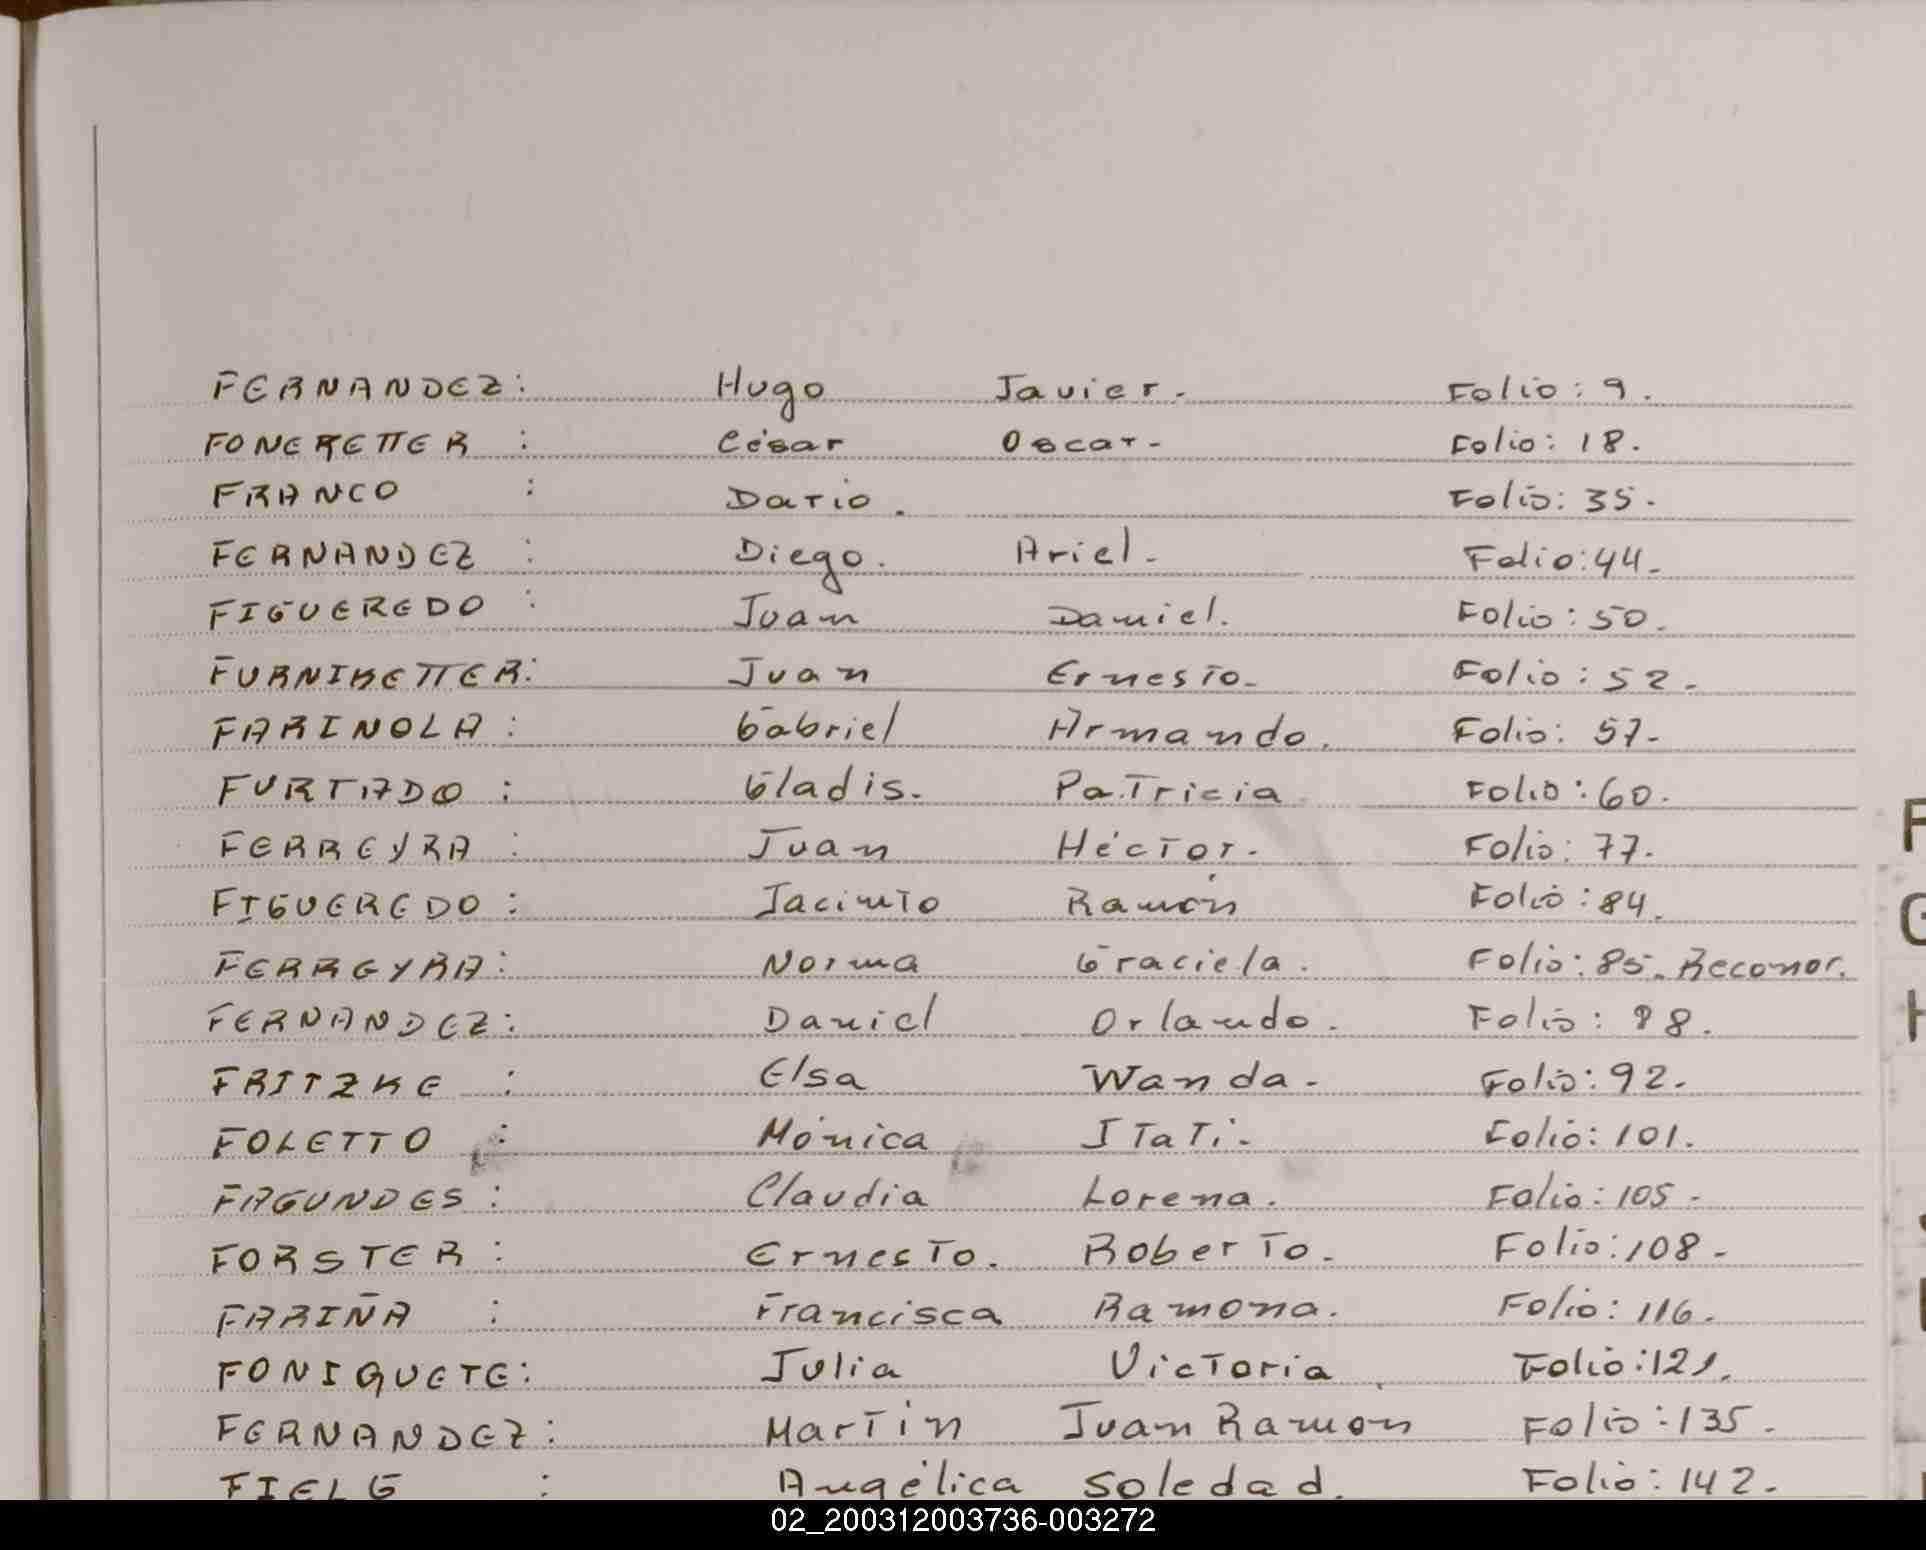 FERNANDEZ: Hugo Javier. Folio: 9.
FONERETTER : César Oscar- Folio: 18.
FRANCO : Dario. Folio: 35.
FERNANDEZ : Diego. Ariel. Folio: 44.
FIGUEREDO : Juan Daniel. Folio: 50.
FURNIKETTER: Juan Ernesto. Folio: 52.
FARINOLA: Gabriel Armando. Folio: 57.
FURTADO : Gladis. Patricia Folio: 60.
FERREYRA : Juan Héctor. Folio: 77.
FIGUEREDO: Jacinto Ramón Folio: 84.
FERREYRA: Norma Graciela. Folio: 85. Reconor.
FERNANDEZ: Daniel Orlando. Folio: 88.
FRITZKE : Elsa Wanda. Folio: 92.
FOLETTO : Mónica Itatí. Folio: 101.
FAGUNDES: Claudia Lorena. Folio: 105.
FORSTER : Ernesto. Roberto. Folio: 108.
FARIÑA : Francisca Ramona. Folio: 116.
FONIQUETE: Julia Victoria. Folio: 121.
FERNANDEZ: Martín Juan Ramon Folio: 135.
FIELG : Angélica Soledad. Folio: 142.
F
G
H
02_200312003736-003272